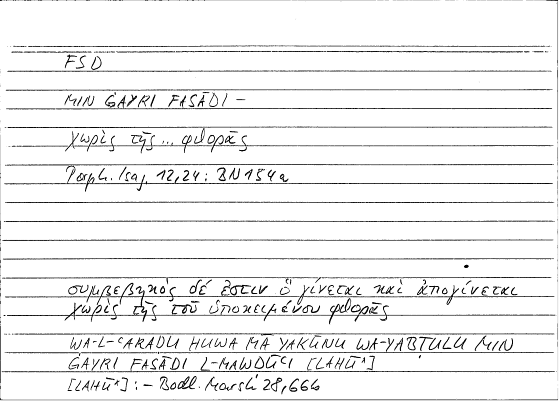 FSD
MIN ĠAYRI FASĀDI –
χωρὶς τῆς ... φθορᾶς
Porph. Isag. 12,24 : BN 154a
συμβεβηκός δέ ἐστιν ὃ γίνεται καὶ ἀπογίνεται
χωρὶς τῆς τοῦ ὑποκειμένου φθορᾶς
WA-L-ʿARAḌU HUWA MĀ YAKŪNU WA-YABṬULU MIN
ĠAYRI FASĀDI L-MAWḌŪʿI [LAHŪ^]
[LAHŪ^] : – Bodl. Marsh 28,66b